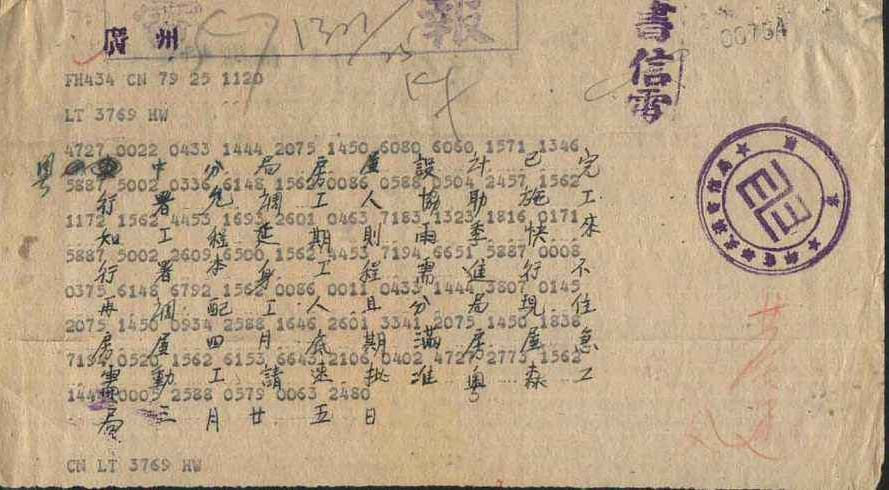 廣州
報
書信電
00764
FH434 CN 79 25 1120
LT 3769 HW
4727 0022 0433 1444 2075 1450 6080 6060 1571 1346
粵 中 分 局 房 屋 設 計 已 完
5887 5002 0336 6148 1562 0086 0588 0504 2457 1562
行 署 允 調 工 人 協 助 施 工
1172 1562 4453 1693 2601 0463 7183 1323 1816 0171
知 工 程 延 期 則 雨 季 快 來
5887 5002 2609 6500 1562 4453 7194 6651 5887 0008
行 署 本 身 工 程 需 進 行 不
0375 6148 6792 1562 0086 0011 0433 1444 3807 0145
再 調 配 工 人 且 分 局 現 住
2075 1450 0934 2588 1646 2601 3341 2075 1450 1838
房 屋 四 月 底 期 滿 房 屋 急
7194 0520 1562 6153 6643 2106 0402 4727 2773 1562
需 動 工 請 速 批 准 粵 森 工
1444 0005 2588 0579 0063 2480
局 三 月 廿 五 日
CN LT 3769 HW